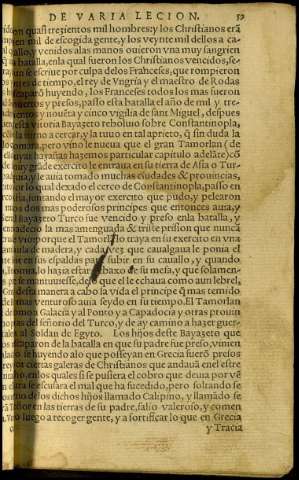 DE VARIA LECION. 59
quasi trezientos mil hombres: y los Christianos erã
en mil de escogida gente, y los veynte mil dellos a ca-
uallo, y venidos alas manos ouieron vna muy sangrien
batalla, enla qual fueron los Christianos vencidos, se-
se escriue por culpa delos Franceses, que rompieron
antes de tiempo, el rey de Vngria y el maestro de Rodas
escaparõ huyendo, los Franceses todos los mas fueron
muertos y presos, passo esta batalla el año de mil y tre-
zientos y nouẽta y cinco vigilia de sant Miguel, despues
esta victoria Bayazeto reboluio sobre Constantinopla,
torno a cercar, y la tuuo en tal aprieto, q̃ sin duda la
tomara, pero vino le nueua que el gran Tamorlan (de
cuyas hazañas hazemos particular capitulo adelãte) cõ
muy grãde exercito le entraua en su tierra de Asia o Tur-
y le auia tomado muchas ciudades & prouincias,
por lo qual dexado el cerco de Constantinopla, passo en
juntando el mayor exercito que pudo, y pelearon
dos mas poderosos principes que entonces auia, y
Bayazeto Turco fue vencido y preso enla batalla, y
la mas amenguada & triste prision que nunca
vio, porque el Tamorlã lo traya en su exercito en vna
jaula de madera, y cada vez que caualgaua le ponia el
pie en sus espaldas para subir en su cauallo, y quando
comia, lo hazia estar debaxo de su mesa, y que solamen-
te se mantuuiesse, de lo que el le echaua como a vn lebrel,
desta manera a cabo la vida el principe q̃ mas temido
mas venturoso auia seydo en su tiempo. El Tamorlan
tomo a Galacia y al Ponto y a Capadocia y otras prouin
cias del señorio del Turco, y de ay camino a hazer guer-
al Soldan de Egyto. Los hijos deste Bayazeto que
escaparon de la batalla en que su padre fue preso, vinien
huyendo alo que posseyan en Grecia fuerõ presos
ciertas galeras de Christianos que andauã enel estre
cho, enlos quales si se pusiera el cobro que deuia por vẽ
tura se escusara el mal que ha sucedido, pero soltando se
vno de los dichos hijos llamado Calipino, y llamãdo se
señor en las tierras de su padre, salio valeroso, y comen
luego a recoger gente, y a fortificar lo que en Grecia
y Tracia